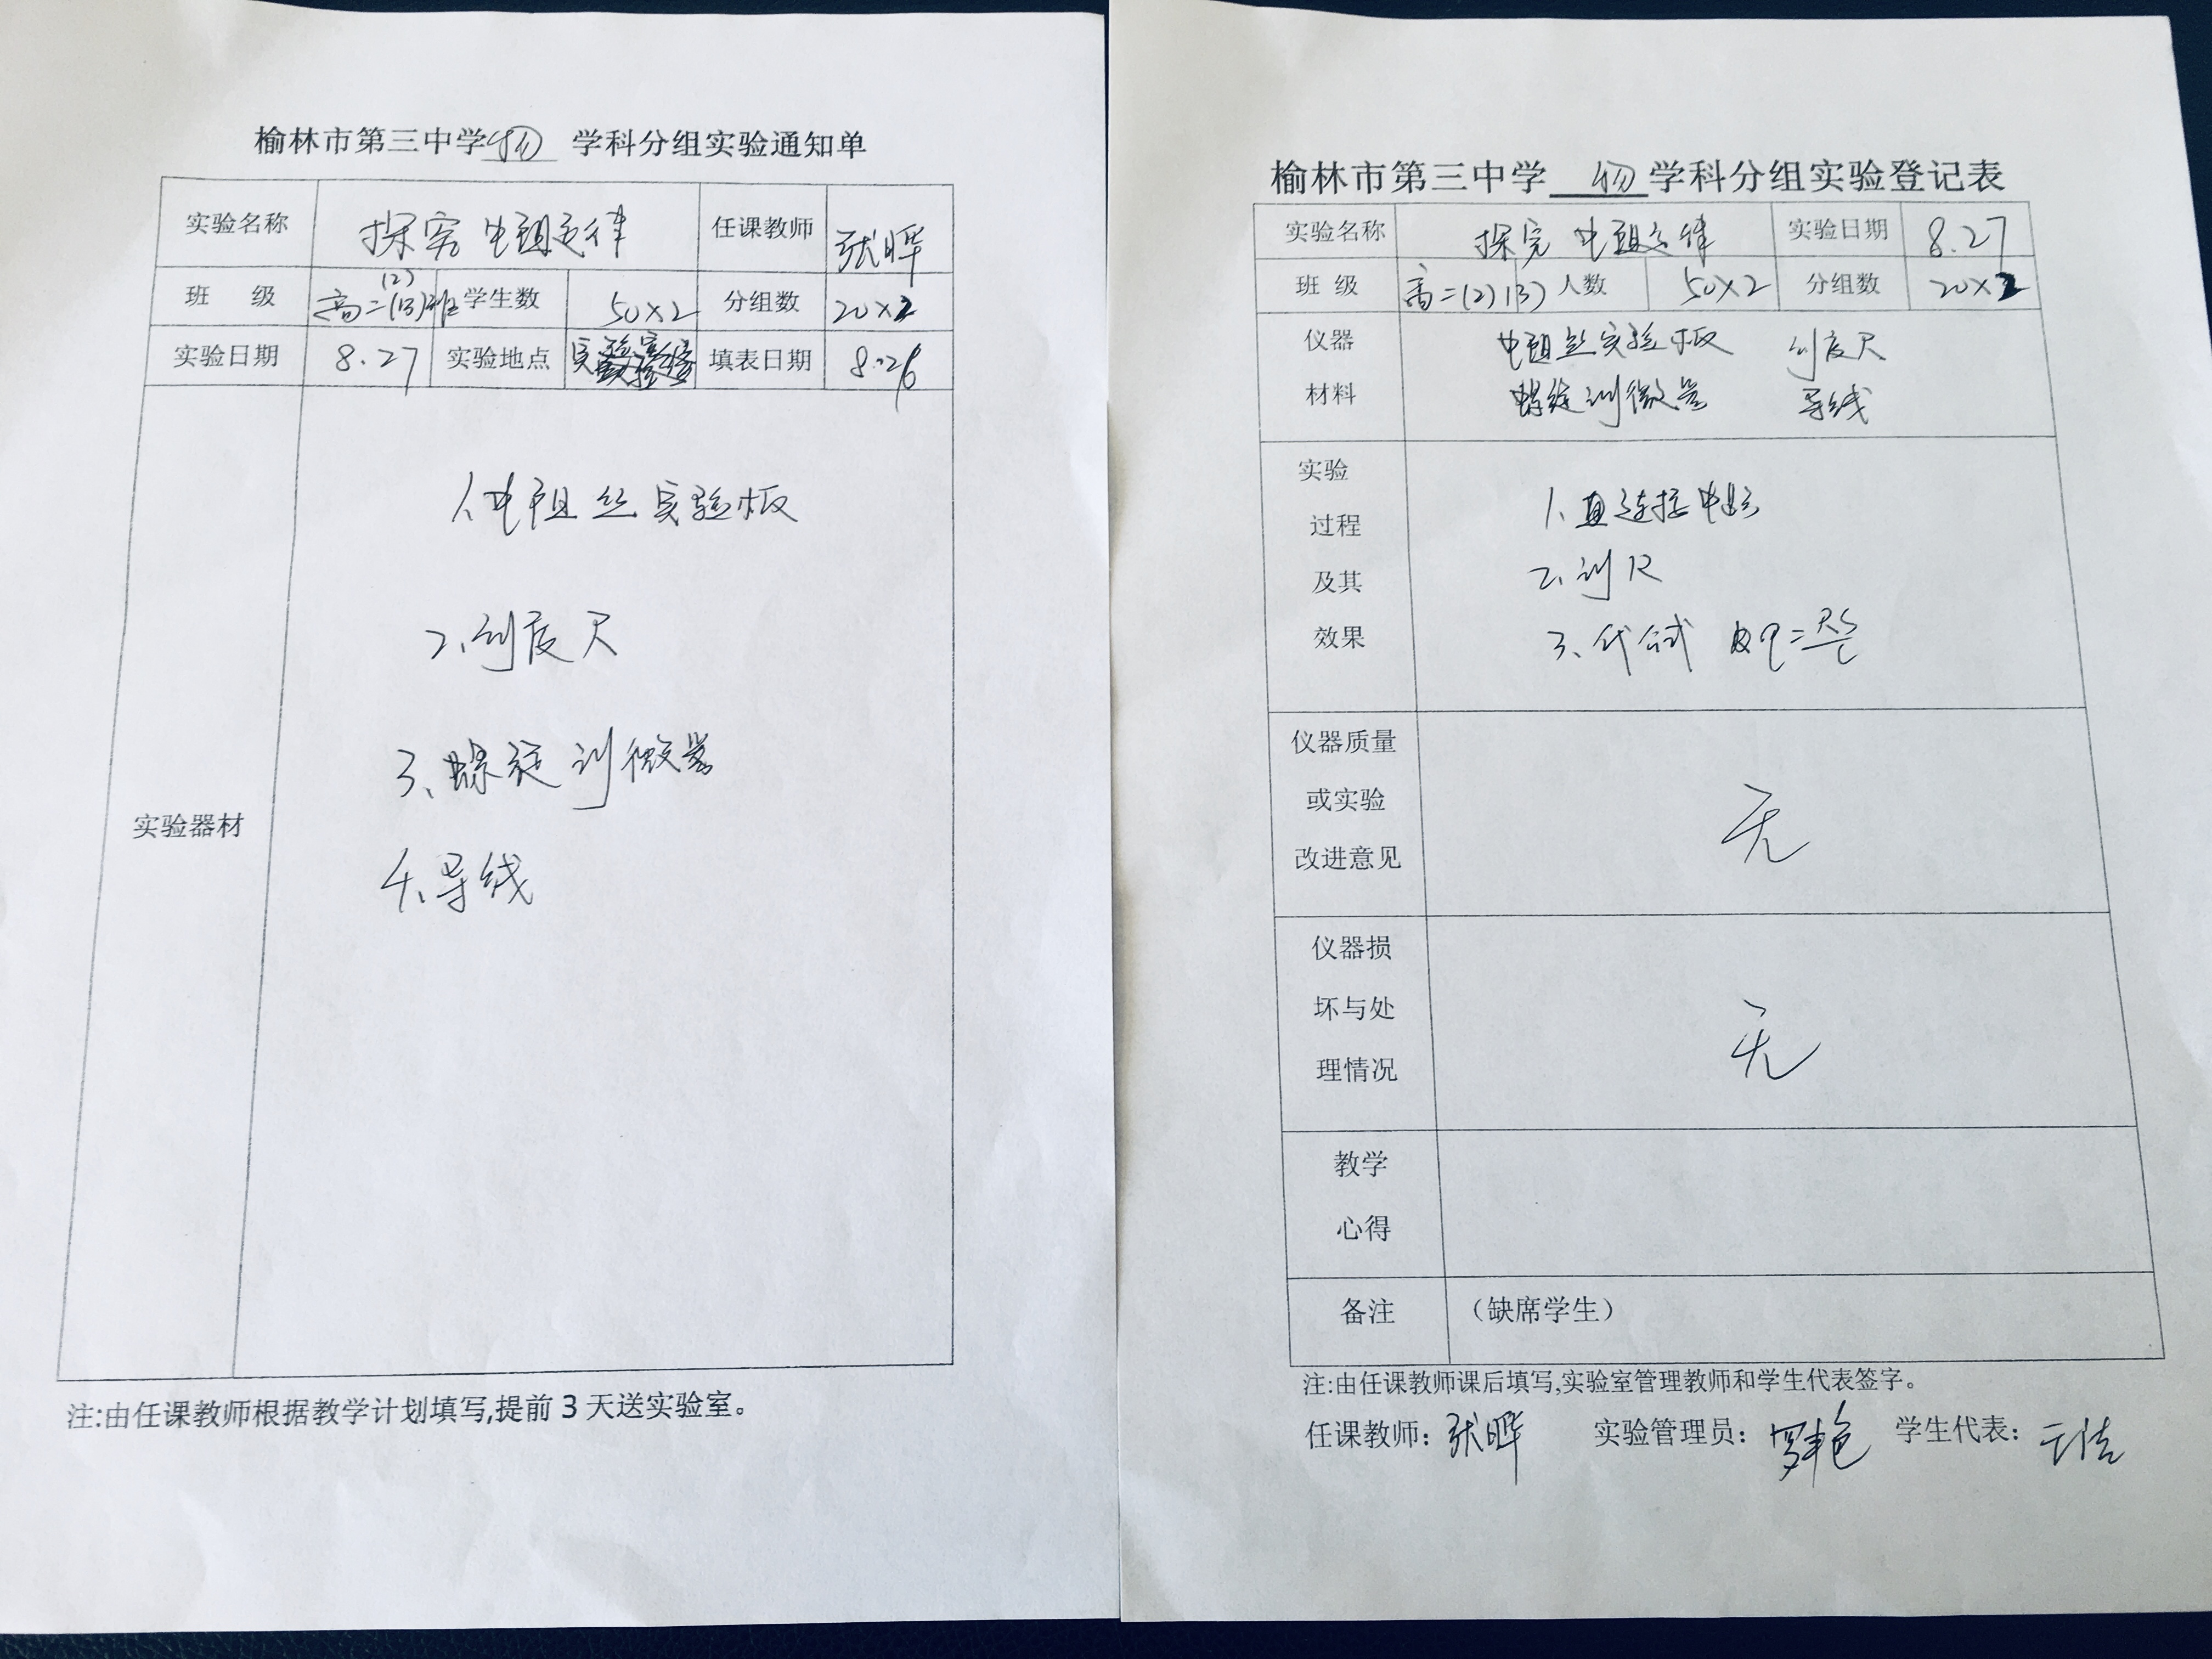 榆林市第三中学 物 学科分组实验通知单
实验名称 探究电阻定律 任课教师 张晖
班 级 高二(2)(13)班 学生数 50×2 分组数 20×2
实验日期 8.27 实验地点 填表日期 8.26
实验器材
1、电阻丝实验板
2、刻度尺
3、螺旋测微器
4、导线
注:由任课教师根据教学计划填写,提前3天送实验室。
榆林市第三中学 物 学科分组实验登记表
实验名称 探究电阻定律 实验日期 8.27
班 级 高二(2)(13) 人数 50×2 分组数 20×2
仪器 电阻丝实验板 刻度尺
材料 螺旋测微器 导线
实验
过程
及其
效果
1、连接电路
2、测R
3、代公式 ρ=RS/L
仪器质量
或实验
改进意见
无
仪器损
坏与处
理情况
无
教学
心得
备注 （缺席学生）
注:由任课教师课后填写,实验室管理教师和学生代表签字。
任课教师：张晖 实验管理员：罗艳 学生代表：